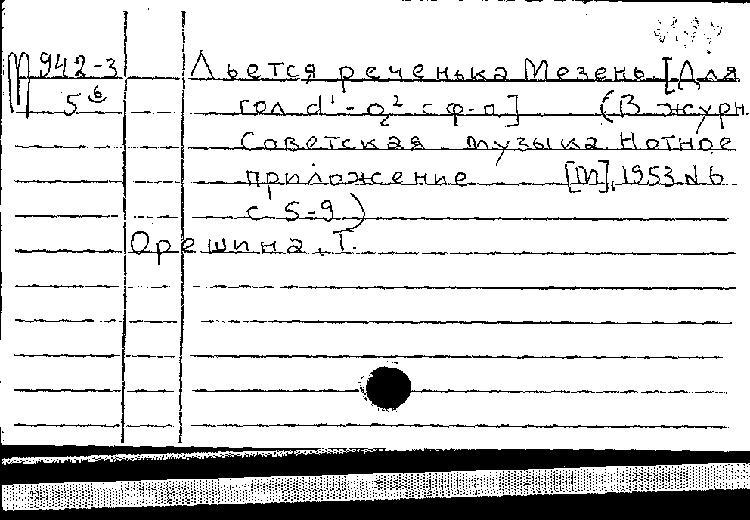 М 942-3 Льется реченька Мезень. [Для
5 6 гол d¹-g² с ф-п] (В журн.
Советская музыка. Нотное
приложение [М], 1953 N 6
с 5-9)
Орешина, Т.